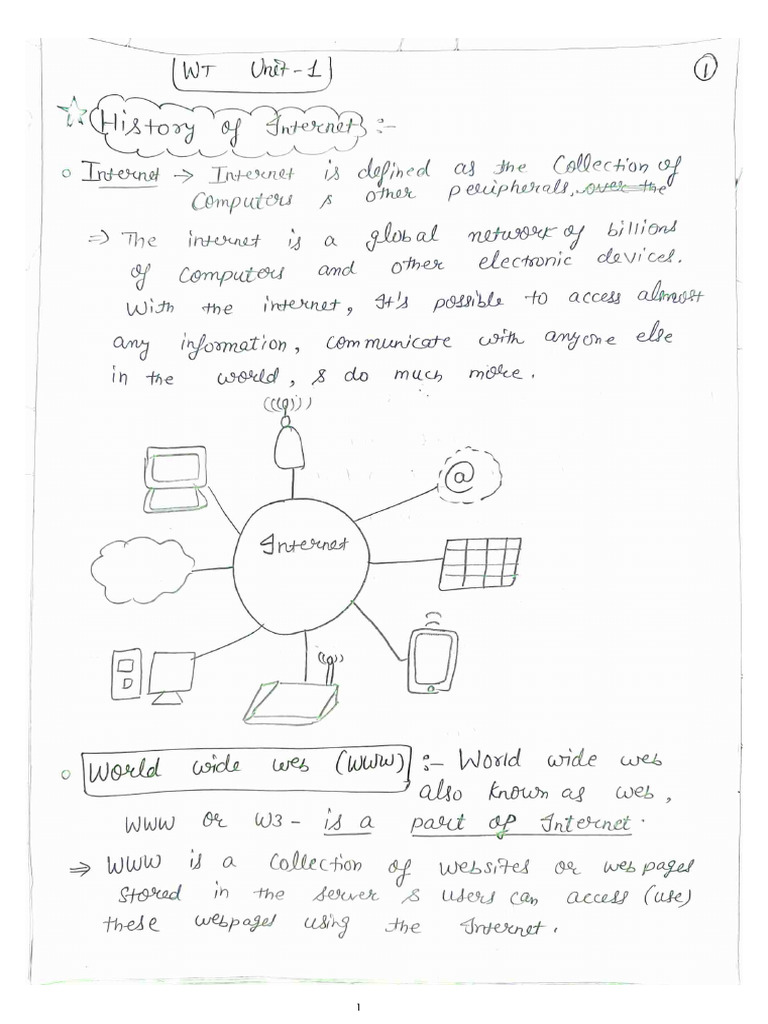 WT Unit-1
1
History of Internet :-
Internet → Internet is defined as the Collection of
Computers & other peripherals, over the
⇒ The internet is a global network of billions
of computers and other electronic devices.
With the internet, It's possible to access almost
any information, communicate with anyone else
in the world, & do much more.
((g)))
@
Internet
((g))
World wide web (WWW) :- World wide web
also known as web,
WWW or W3 - is a part of Internet.
⇒ WWW is a collection of websites or web pages
stored in the server & users can access (use)
these webpages using the Internet.
1